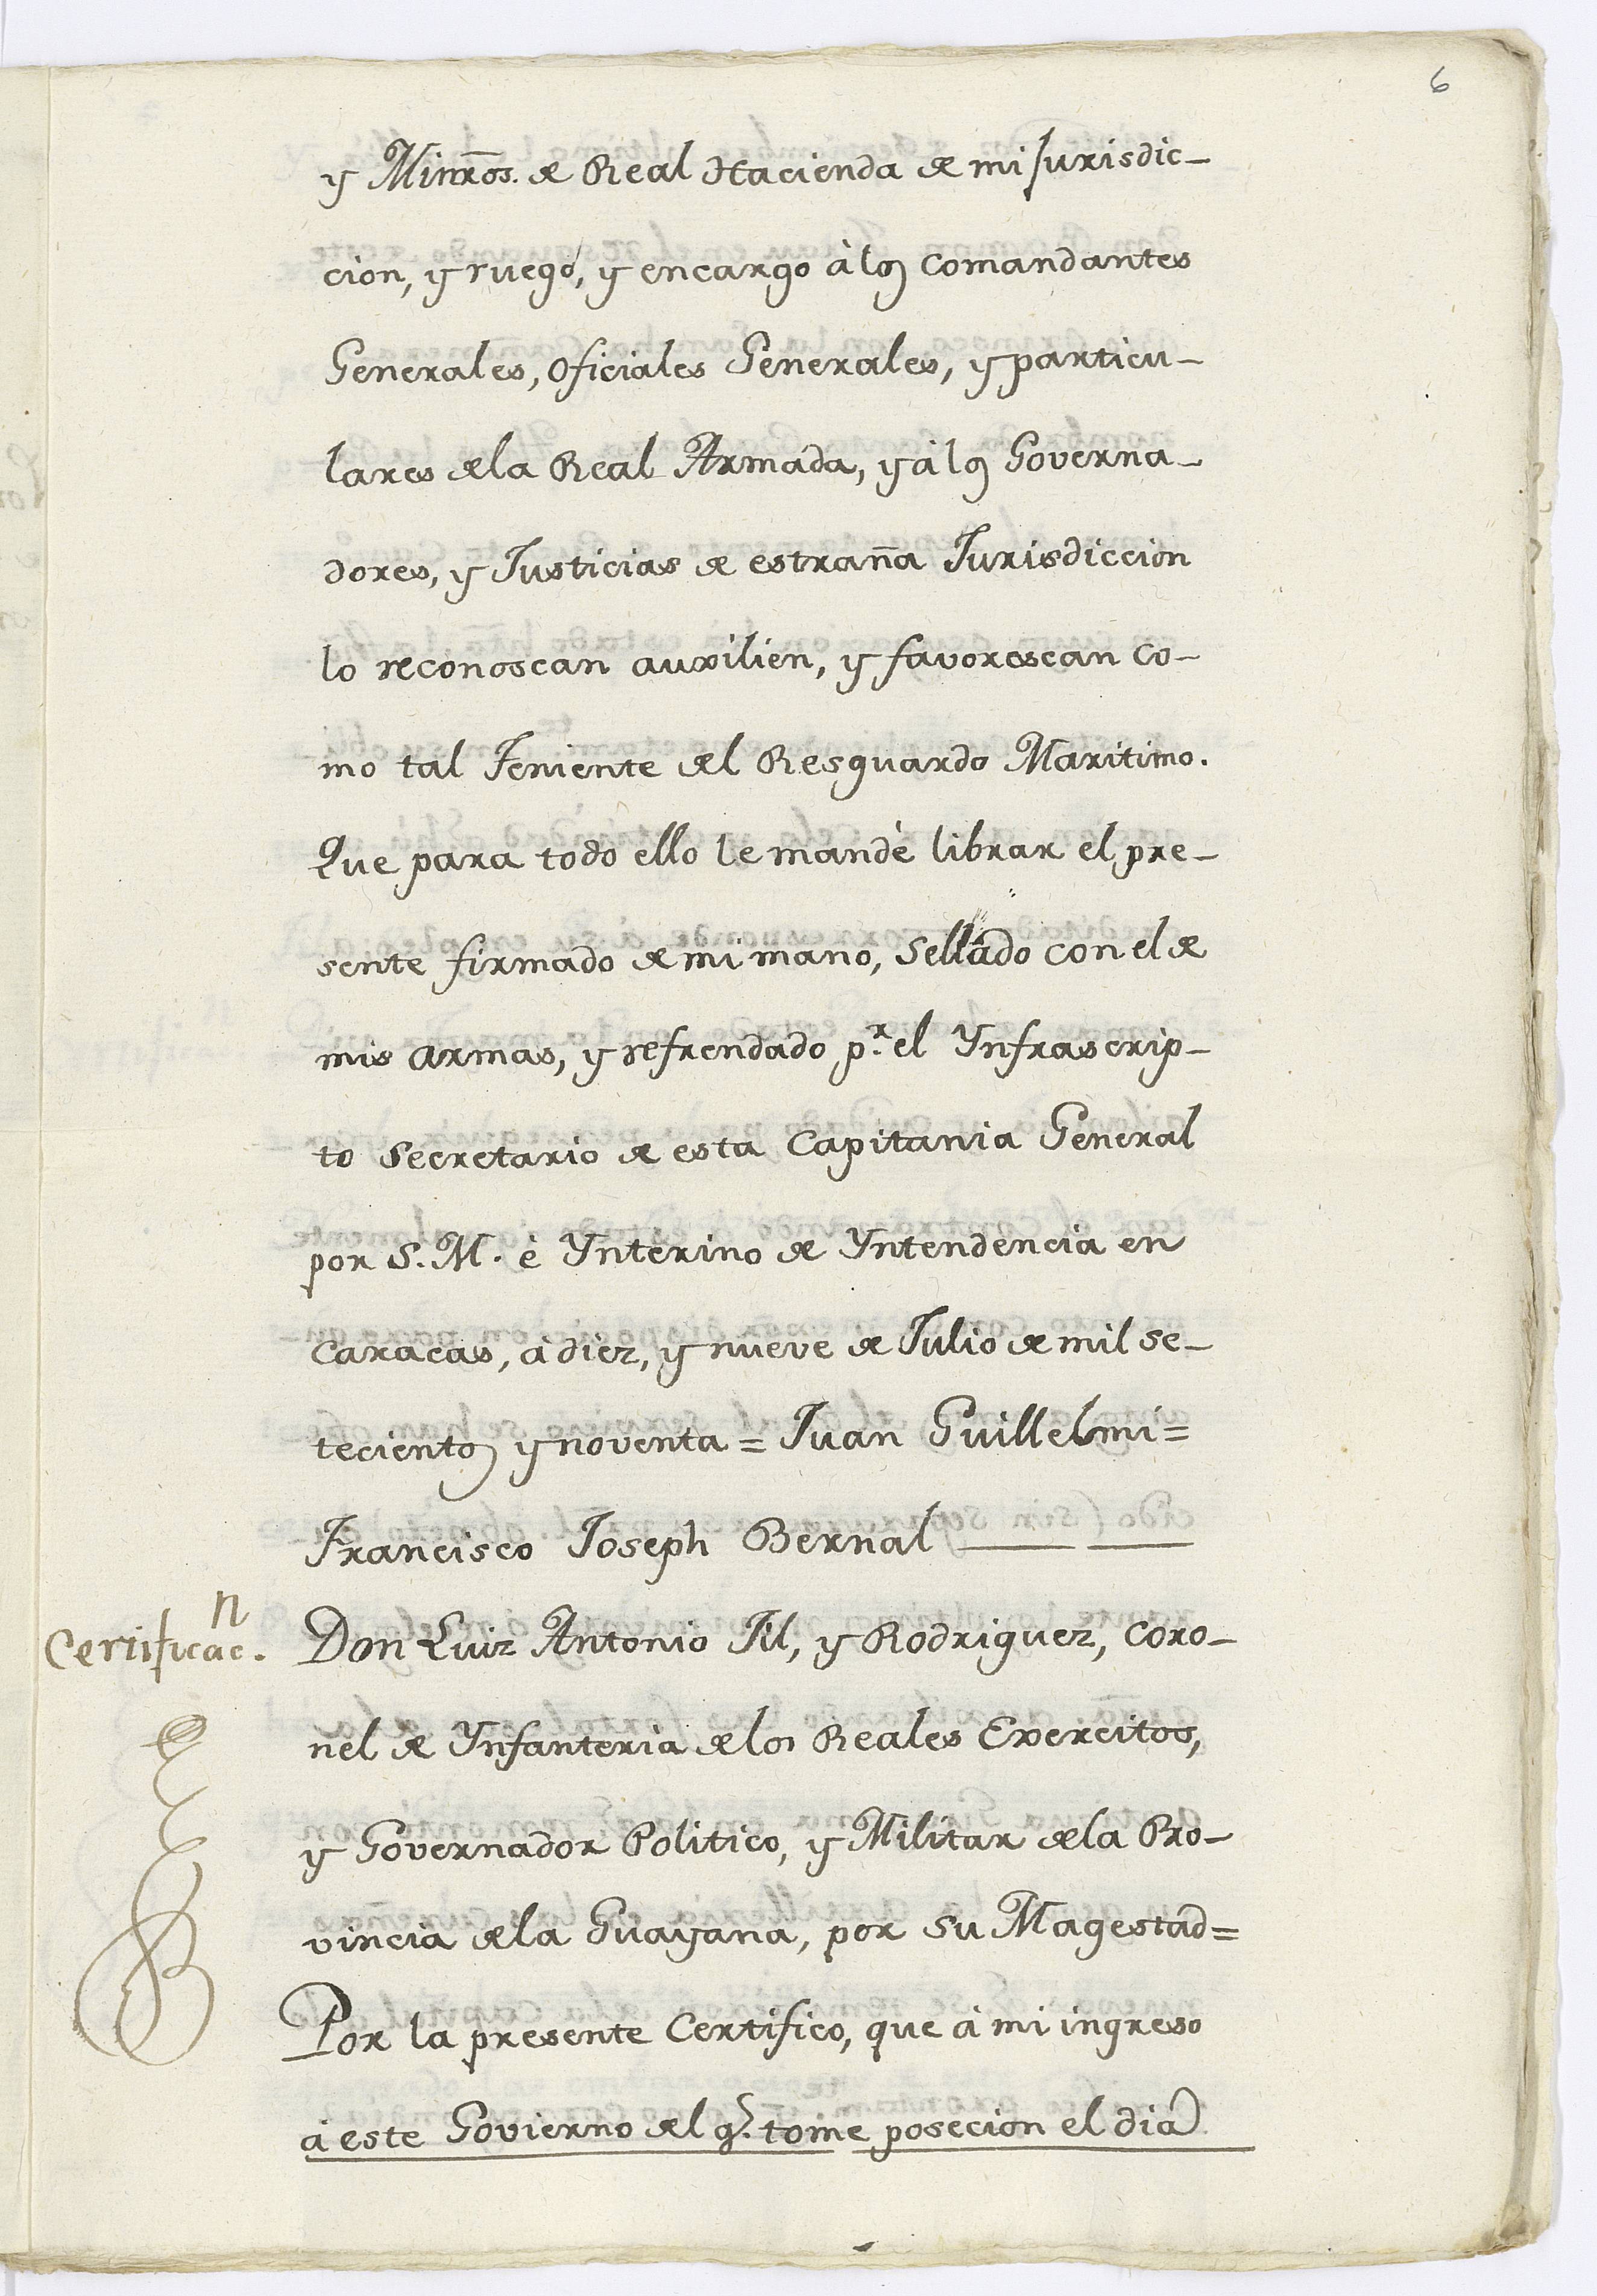 6
y Minrōs. de Real Hacienda de mi Jurisdic-
cion, y ruego, y encargo à los Comandantes
Generales, Oficiales Generales, y particu-
lares de la Real Armada, y à los Governa-
dores, y Justicias de estraña Jurisdiccion
lo reconoscan auxilien, y favorescan co-
mo tal Teniente del Resguardo Maritimo.
Que para todo ello le mandè librar el pre-
sente firmado de mi mano, Sellado con el de
mis armas, y refrendado p.r el Ynfrascrip-
to Secretario de esta Capitania General
por S. M. è Ynterino de Yntendencia en
Caracas, à diez, y nueve de Julio de mil se-
tecientos y noventa = Juan Guillelmi =
Francisco Joseph Bernal
Certificac.n
Don Luiz Antonio Jil, y Rodriguez, Coro-
nel de Ynfanteria de los Reales Exercitos,
y Governador Politico, y Militar de la Pro-
vincia de la Guayana, por su Magestad =
Por la presente Certifico, que à mi ingreso
à este Govierno del q.e tome posecion el dia